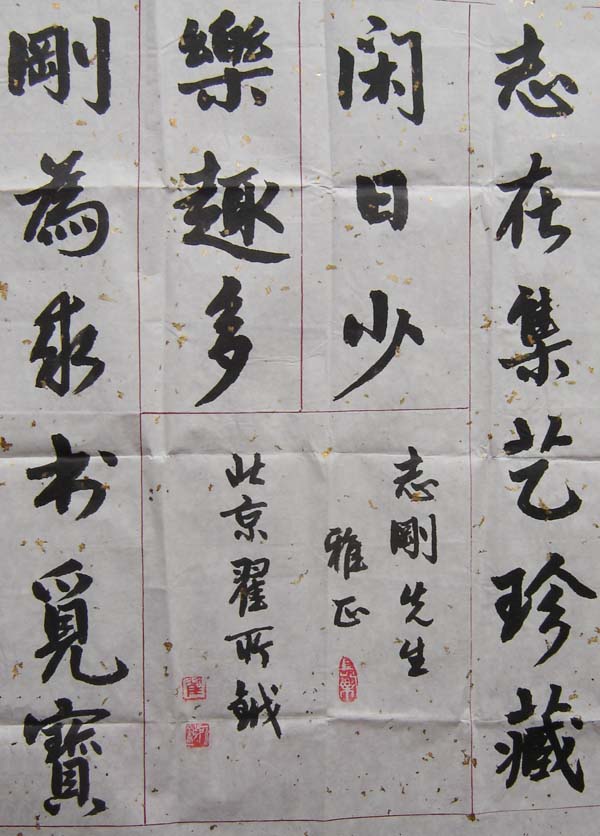 志在集艺珍藏
闲日少
剛為求术覓寶
樂趣多
志剛先生
雅正
長樂
北京翟所鉞